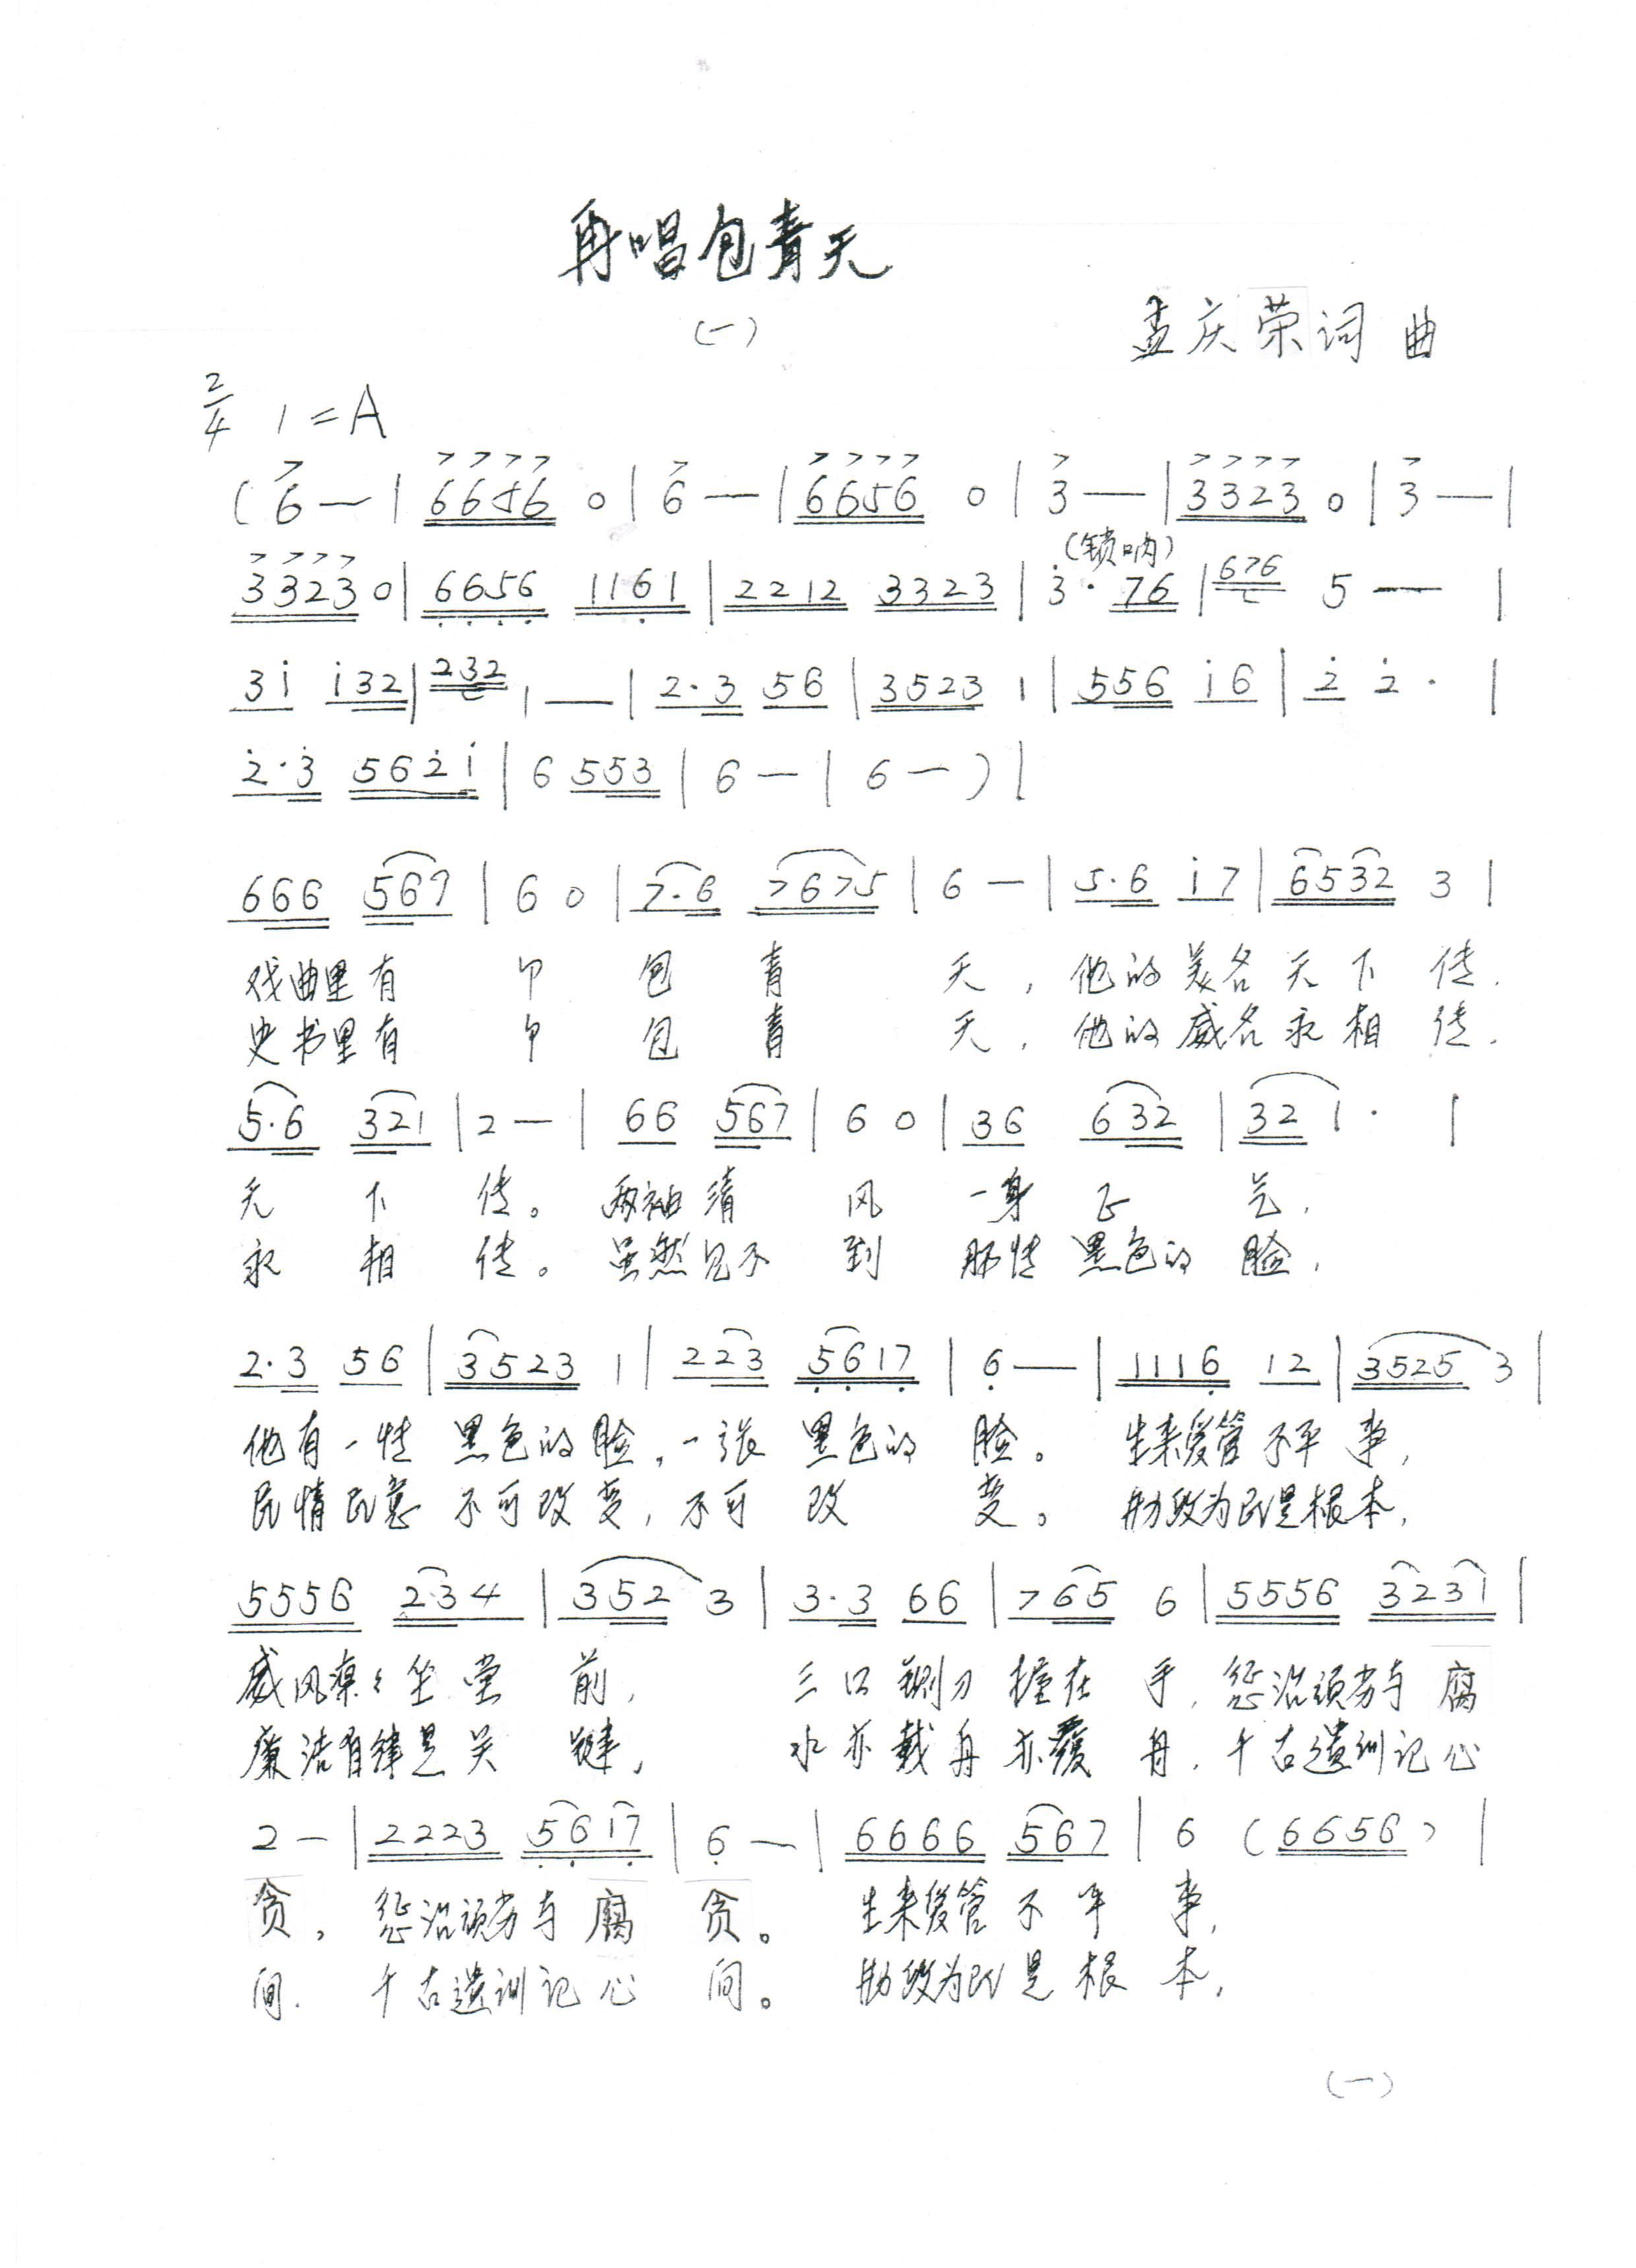 再唱包青天
(一)
孟庆荣词 曲
2/4 1=A
(6 — | 6656 0 | 6 — | 6656 0 | 3 — | 3323 0 | 3 — |
(锁呐)
3323 0 | 6656 1161 | 2212 3323 | 3· 76 | 676 5 — |
3i i32 | 232 1 — | 2·3 56 | 3523 1 | 556 i6 | 2 2· |
2·3 562i | 6 553 | 6 — | 6 — ) |
666 567 | 6 0 | 7·6 7675 | 6 — | 5·6 i7 | 6532 3 |
戏曲里有 个 包 青 天, 他的美名天下传.
史书里有 个 包 青 天, 他的威名永相传.
5·6 321 | 2 — | 66 567 | 6 0 | 36 632 | 32 1· |
天 下 传。 两袖清 风 一身正 气,
永 相 传。 虽然见不 到 那张 黑色的 脸,
2·3 56 | 3523 1 | 223 5617 | 6 — | 1116 12 | 3525 3 |
他有一张 黑色的脸, 一张 黑色的 脸。 生来爱管不平事,
民情民意 不可改变, 不可 改 变。 勤政为民是根本,
5556 2·34 | 352 3 | 3·3 66 | 765 6 | 5556 3231 |
威风凛々坐堂 前, 三口铡刀 握在 手, 惩治顽劣与 腐
廉洁自律是关 键, 水亦载舟亦覆 舟, 千古遗训记心
2 — | 2223 5617 | 6 — | 6666 567 | 6 (6656) |
贪, 惩治顽劣与腐 贪。 生来爱管不平 事,
间. 千古遗训记心 间。 勤政为民是根 本,
(一)